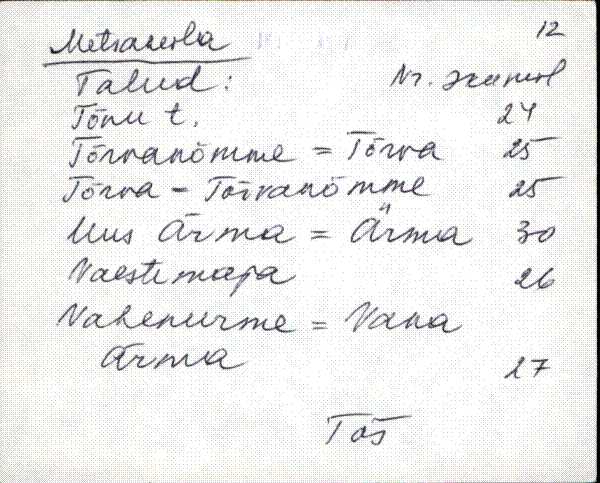 12
Metsaküla
Talud: Nr.
Tõnu t. 24
Tõrvanõmme = Tõrva 25
Tõrva - Tõrvanõmme 25
Uus Ärma = Ärma 30
Vaestemaja 26
Vahenurme = Vana
Ärma 27
Tõš